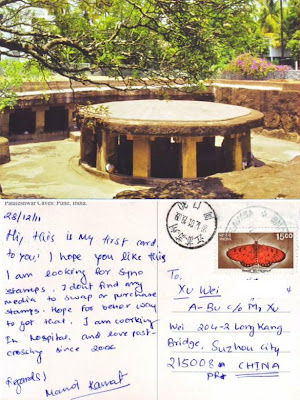 Pataleshwar Caves: Pune, India.
28/12/11
Hi, this is my first card
to you, I hope you like this
I am looking for syno
stamps. I dont find any
media to swap or purchase
stamps. Hope for better way
to get that. I am working
In hospital and love post-
crossing since 2006
Regards!
15.00
To,
Xu Wei
A-Bu c/o M, Xu
Wei 204-2 Long Kang
Bridge, Suzhou city
215008 CHINA
PR